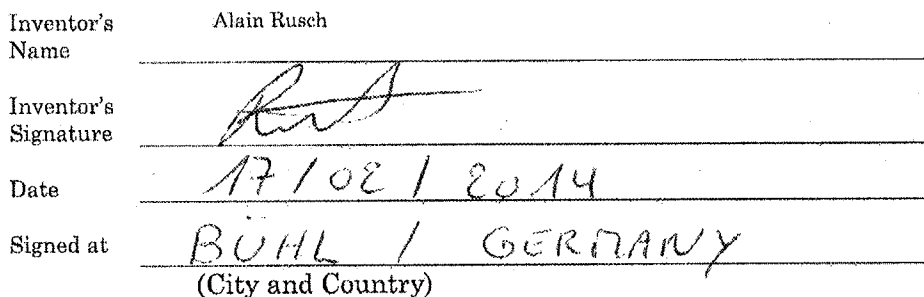 Inventor's Name Alain Rusch
Inventor's Signature
Date 17/02/2014
Signed at BÜHL / GERMANY
(City and Country)